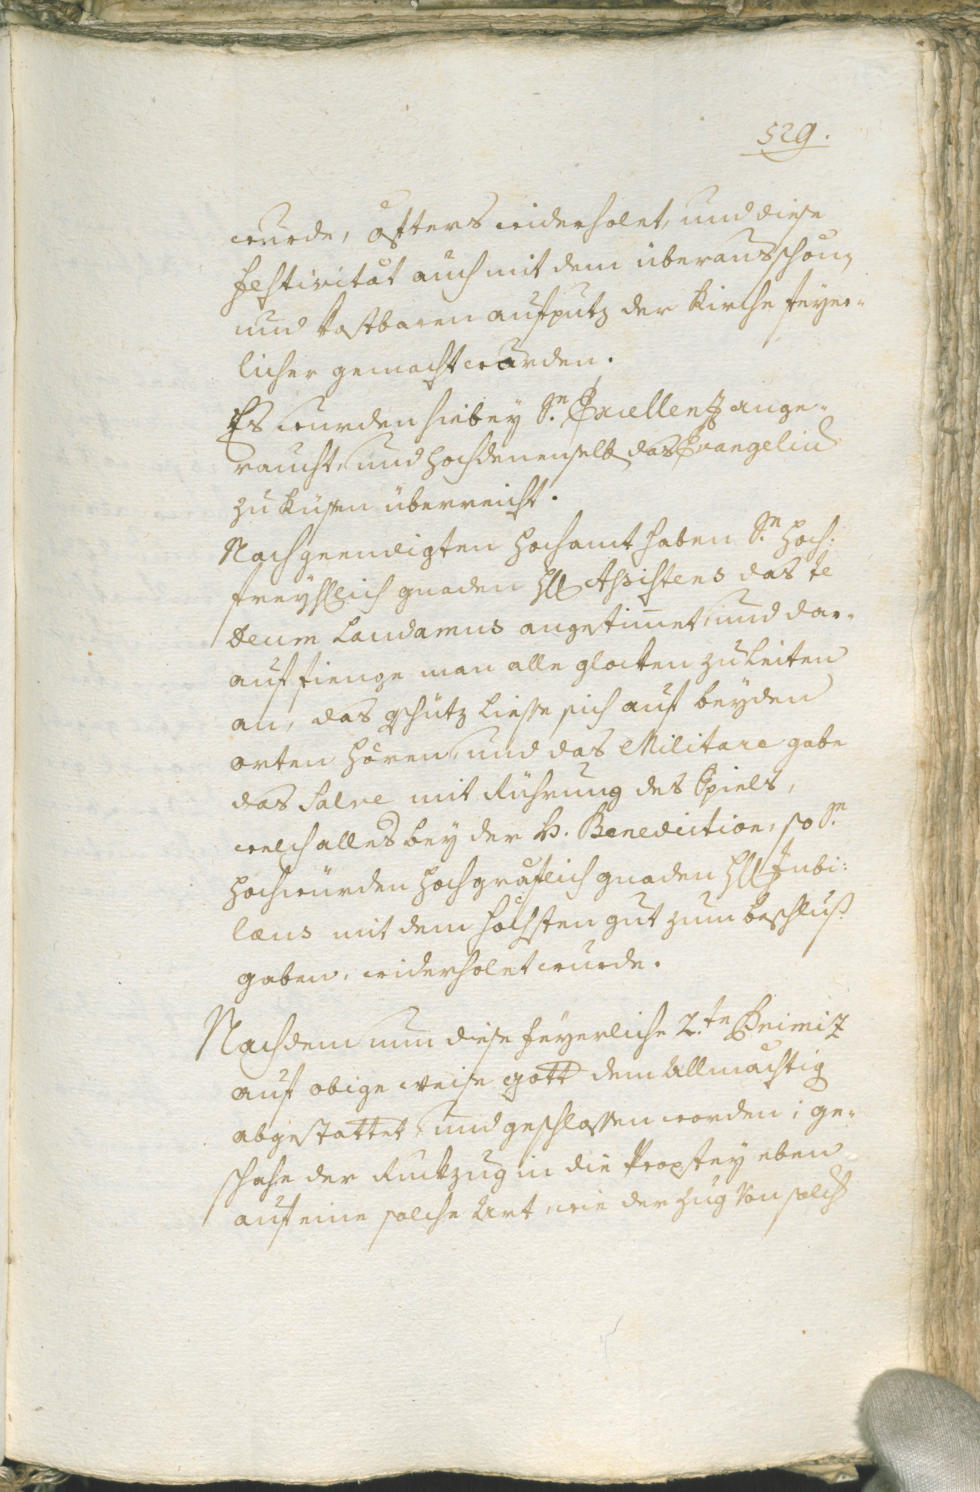 529.
wurde, öffters widerholet, und diese
Festivität auch mit dem überaus schön,
und kostbaren aufputz der Kirche feyer-
licher gemacht worden.
Es wurden hiebey Sr. Excellenz ange-
raucht, und hochdenenselb das Evangeliu
zu küssen überreicht.
Nach geendigten Hochamt haben Se. Hoch:
freyhlich gnaden Hll Assistens das te
Deum Laudamus angestimet, und dar-
auf fienge man alle glocken zu Leiten
an, das gschütz liesse sich auf beyden
orten hören, und das Militare gabe
das Salve mit Rührung des Spiels,
welch alles bey der H. Benediction, so Se.
Hochwürden Hochgräflich gnaden Hll Jubi:
læus mit dem höchsten gut zum beschluß
gaben, widerholet wurde.
Nachdem nun diese feyerliche 2.te Primiz
auf obige weise gott dem Allmächtig
abgestattet, und geschlossen worden; ge-
schahe der Ruckzug in die Propstey eben
auf eine solche Art, wie der Zug von solch